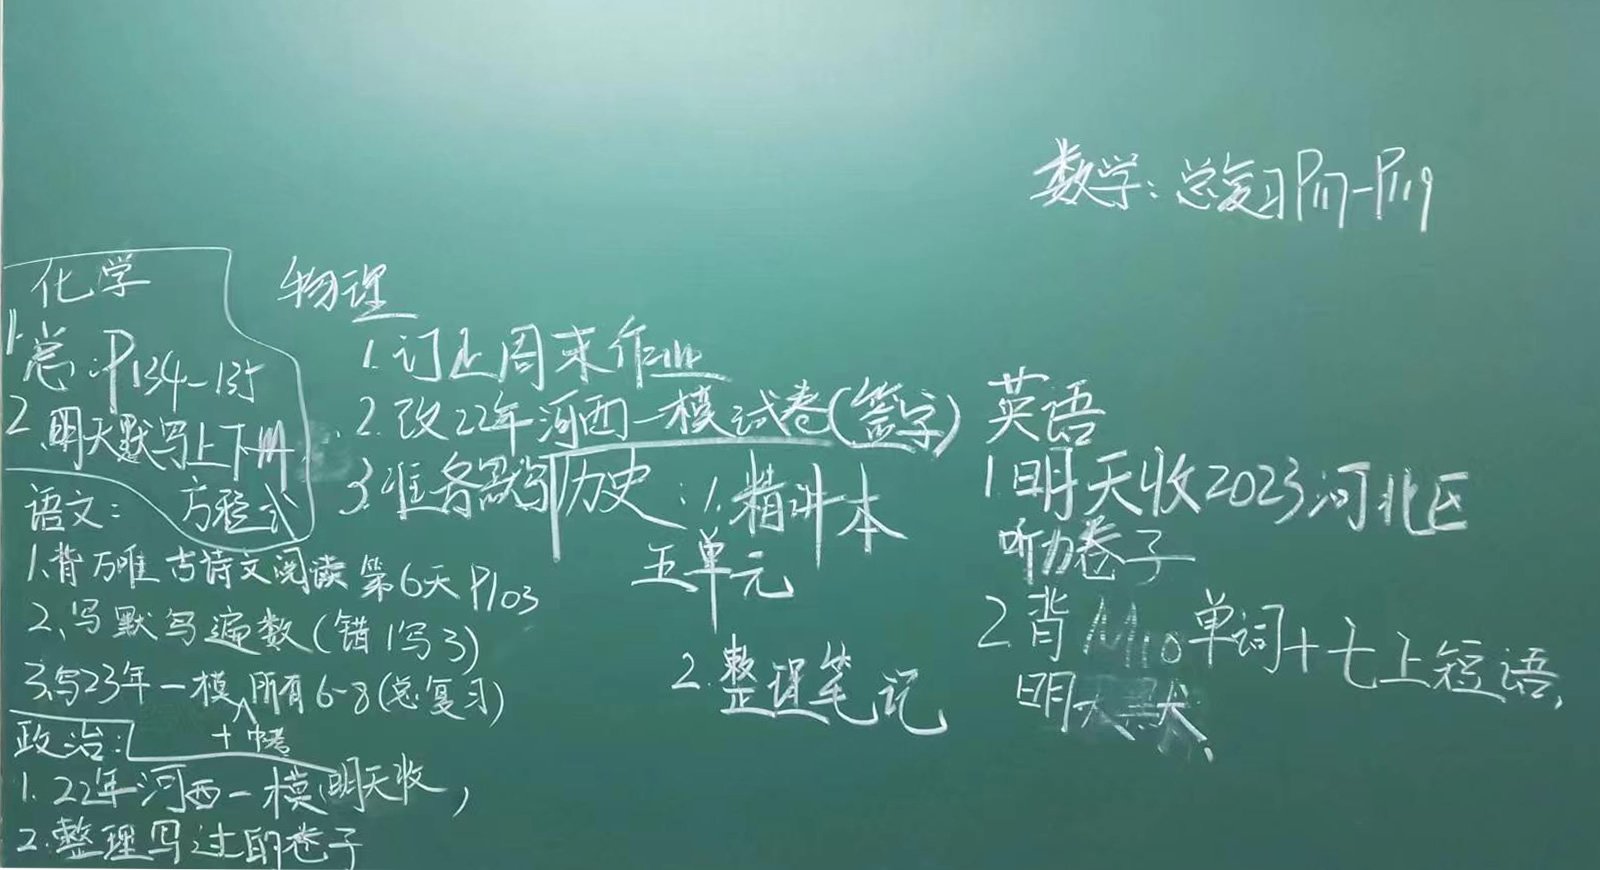 数学：总复习P117-P119
化学
1.总:P134-135
2.明天默写上下册
方程式
物理
1.订正周末作业
2.改22年河西一模试卷(签字)
3.准备默写
历史：1.精讲本
五单元
2.整理笔记
英语
1.明天收2023河北区
听力卷子
2.背M10单词+七上短语,
明天默.
语文：
1.背万唯古诗文阅读第6天P103
2、写默写遍数(错1写3)
3.写23年一模所有6-8(总复习)
+中考
政治：
1.22年河西一模,明天收,
2.整理写过的卷子